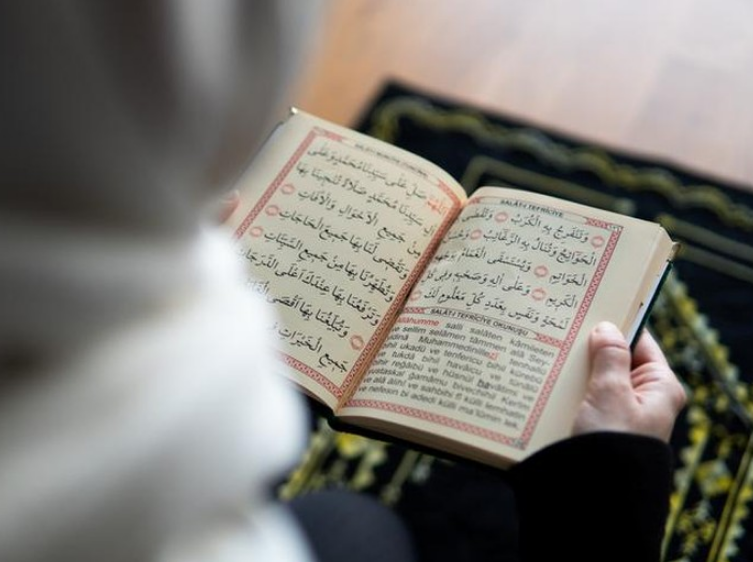 اَللّٰهُمَّ صَلِّ عَلٰى سَيِّدِنَا مُحَمَّدٍ وَعَلٰى
اٰلِ سَيِّدِنَا مُحَمَّدٍ صَلَاةً تُنْجِينَا بِهَا
مِنْ جَمِيعِ الْاَهْوَالِ وَالْاٰفَاتِ
وَتَقْضِى لَنَا بِهَا جَمِيعَ الْحَاجَاتِ
وَتُطَهِّرُنَا بِهَا مِنْ جَمِيعِ السَّيِّئَاتِ
وَتَرْفَعُنَا بِهَا عِنْدَكَ اَعْلَى الدَّرَجَاتِ
وَتُبَلِّغُنَا بِهَا اَقْصَى
جَمِيعِ الْخَيْرَاتِ فِى
SALÂT-I TEFRİCİYE
وَتَنْفَرِجُ بِهِ الْكُرَبُ وَتُقْضٰى
الْحَوَائِجُ وَتُنَالُ بِهِ الرَّغَائِبُ
الْخَوَاتِمِ وَيُسْتَسْقَى الْغَمَامُ بِوَجْهِهِ
الْكَرِيمِ وَعَلٰى اٰلِهِ وَصَحْبِهِ فِى كُلِّ
لَمْحَةٍ وَنَفَسٍ بِعَدَدِ كُلِّ مَعْلُومٍ لَكَ
SALÂT-I TEFRİCİYE OKUNUŞU
salli salâten kâmileten
ve sellim selâmen tâmmen alâ Sey-
dinâ Muhammedinillezî
bihil ukadü ve tenfericu bihil kürebu
ve tukdâ bihil havâicu ve tünâlu
bihir reğâibü ve hüsnül havâtimi ve
yustaskal ğamâmu bivechihil Kerîm
ve alâ âlihî ve sahbihi fî külli lemhatin
ve nefesin bi adedi külli ma'lûmin lek.